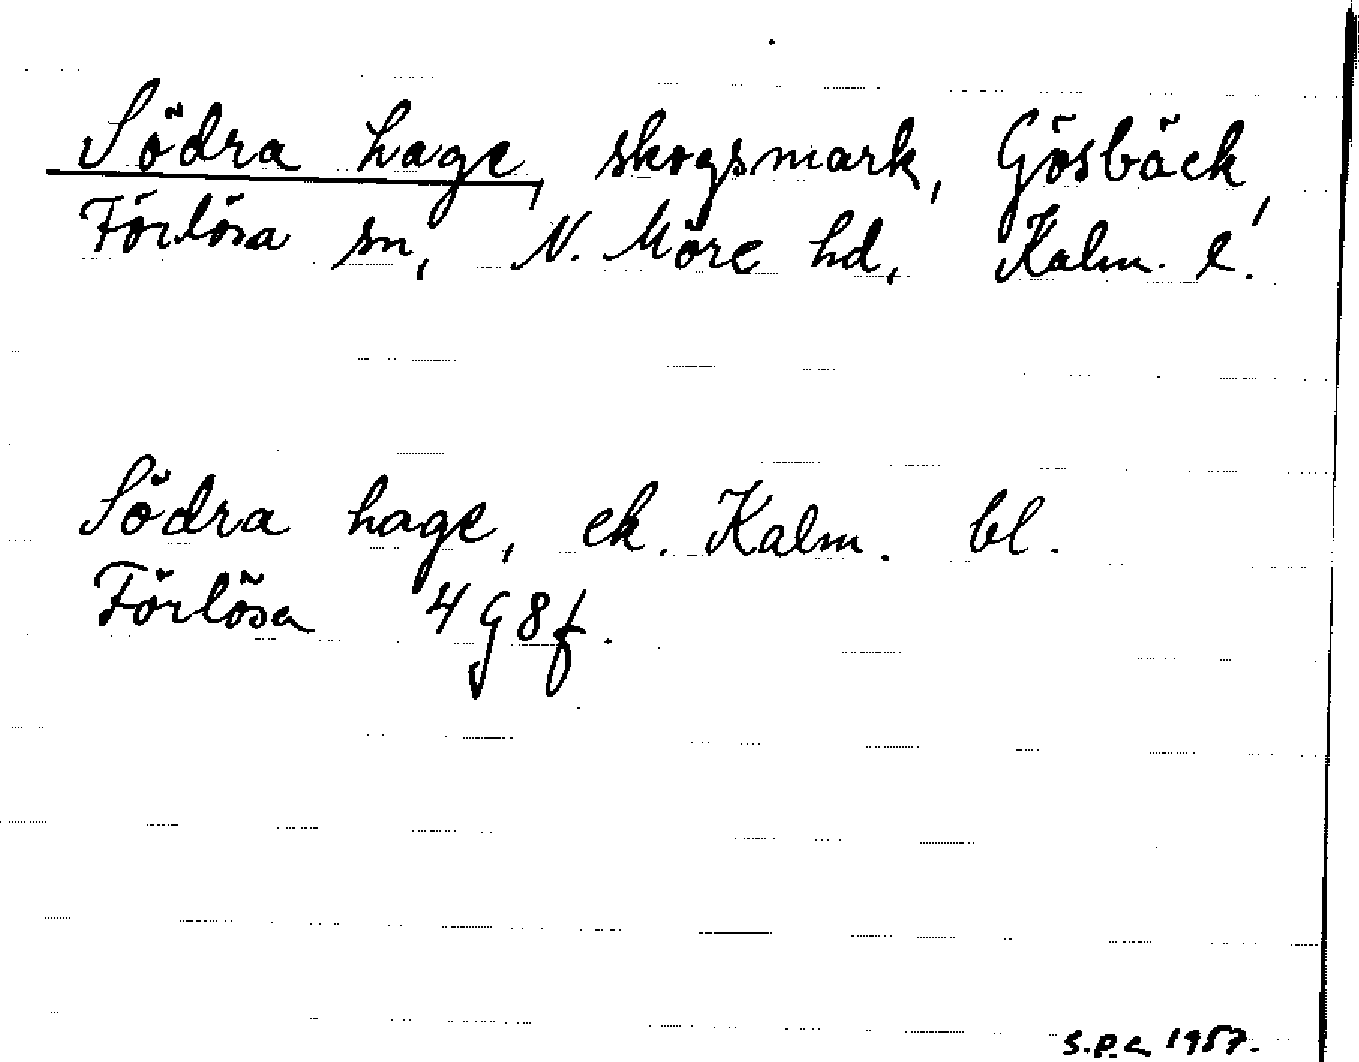 Södra hage, skogsmark, Gösbäck,
Förlösa sn, N. Möre hd, Kalm. l.
Södra hage, ek. Kalm. bl.
Förlösa 4 G 8 f.
S.P.C. 1957.